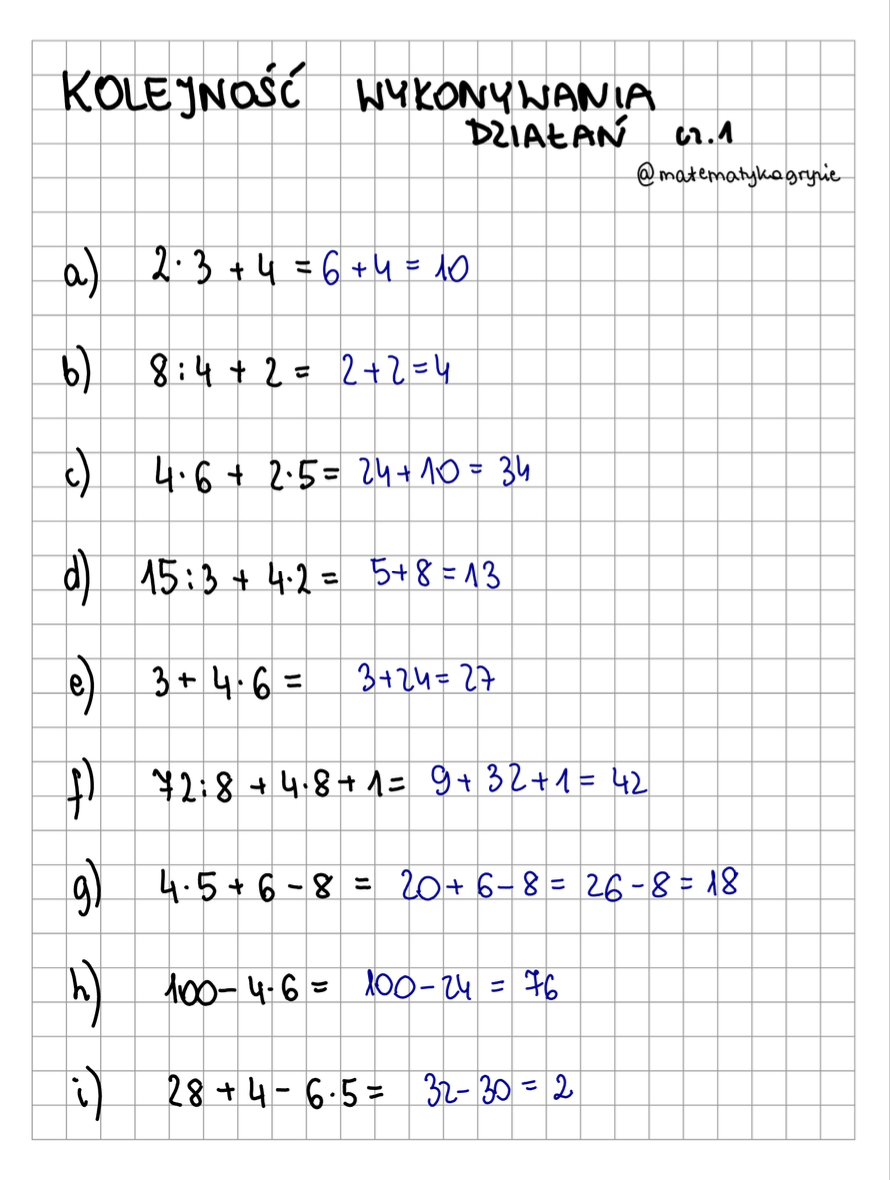 KOLEJNOŚĆ WYKONYWANIA
DZIAŁAŃ cz.1
@matematykagryzie
a) 2·3 + 4 = 6 + 4 = 10
b) 8:4 + 2 = 2+2=4
c) 4·6 + 2·5 = 24+10 = 34
d) 15:3 + 4·2 = 5+8=13
e) 3 + 4·6 = 3+24=27
f) 72:8 + 4·8 + 1 = 9 + 32 + 1 = 42
g) 4·5 + 6 - 8 = 20 + 6 - 8 = 26 - 8 = 18
h) 100 - 4·6 = 100 - 24 = 76
i) 28 + 4 - 6·5 = 32 - 30 = 2